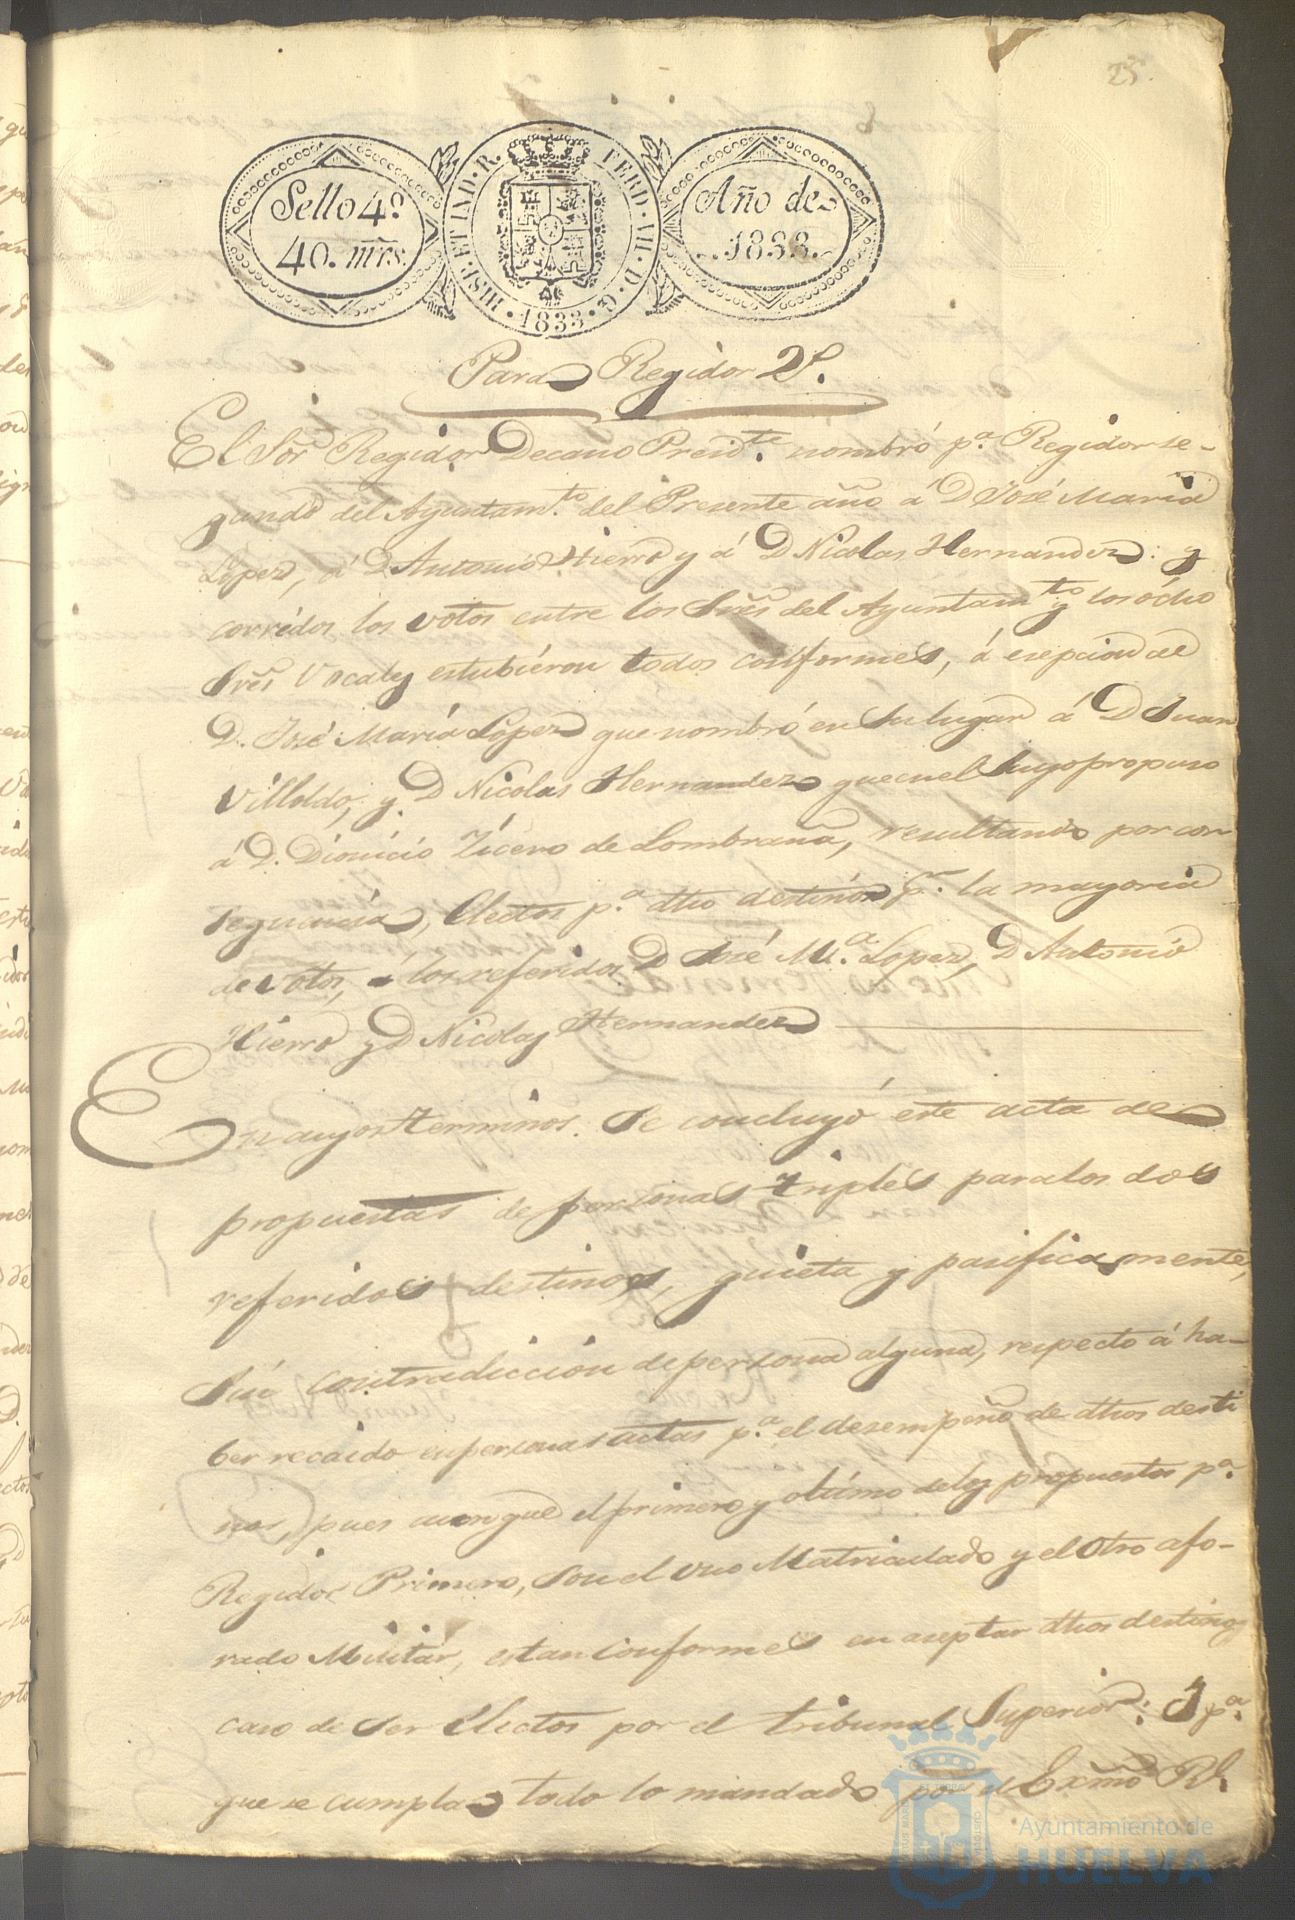 25.
Sello 4º
40. mrs.
HISP. ET IND. R. FERD. VII. D. G. 1833.
Año de
1833.
Para Regidor 2º.
El Sor Regidor Decano Presidte. nombró pª. Regidor se-
gundo del Ayuntamto. del Presente año á D José Maria
Lopez, á D Antonio Hierro y á D Nicolas Hernandez: y
corridos los votos entre los Sres del Ayuntamto y los ócho
Sres Vocales estubiéron todos conformes, á esepcion de
D. José María Lopez que nombró en su lugar á D Juan
Villoldo, y D Nicolas Hernandez que en el suyo propuso
á D. Dionicio Zícero de Lombraña, resultando por con
seguencia, Electos pª. dho destino pr. la mayoria
de votos, á los referidos D José Mª. Lopez, D Antonio
Hierro y D Nicolas Hernandez
En cuyos terminos. Se concluyó este acta de
propuestas de personas triples para los dos
referidos destinos, quieta y pasificamente,
sin contradiccion de persona alguna, respecto á ha-
ber recaido en personas actas pª. el desempeño de dhos desti
nos, pues aunque el primero y último de los propuestos pª.
Regidor Primero, son el uno Matriculado y el otro afo-
rado Militar, estan conformes en aseptar dhos destinos
caso de ser electos por el tribunal Superior: Y pª.
que se cumpla todo lo mandado por el Exmo Rl.
Ayuntamiento de
HUELVA